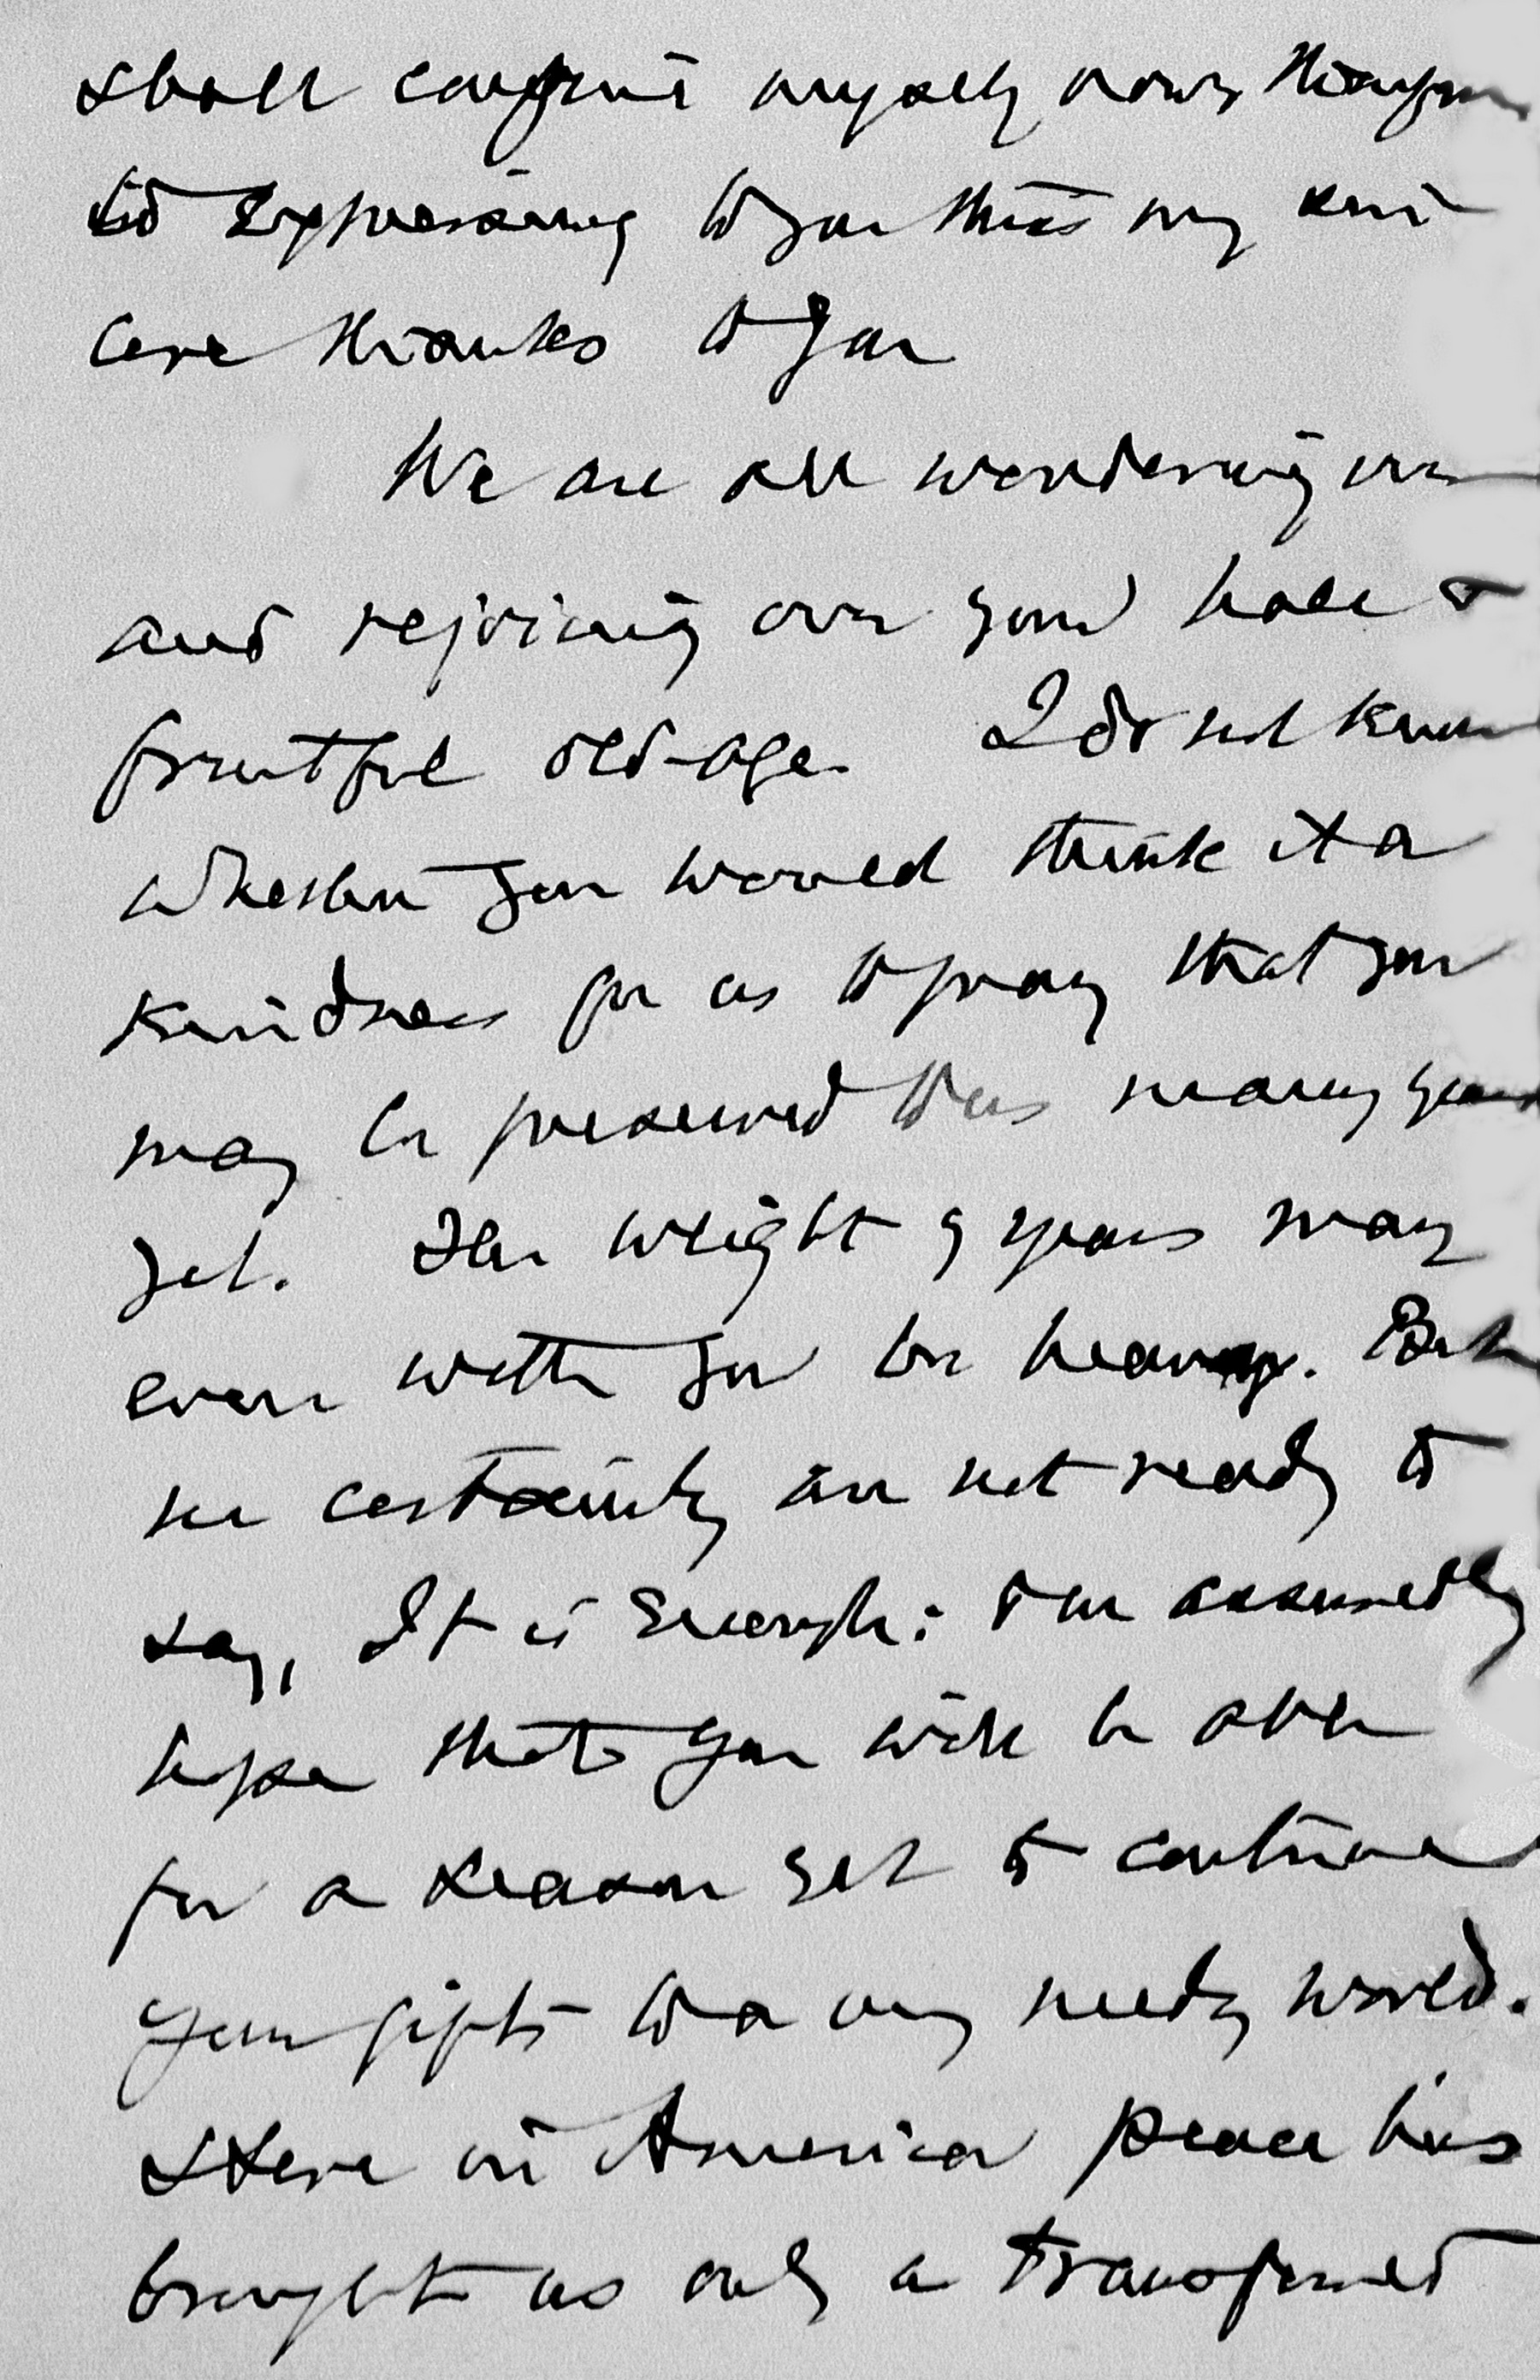 shall confine myself now
to expressing to you thus my sin-
cere thanks to you
We are all wondering over
and rejoicing over your hale &
fruitful old-age. I do not know
whether you would think it a
kindness for us to pray that you
may be preserved to us many years
yet. The weight of years may
even with you be heavy. But
we certainly are not ready to
say, It is Enough: & we assuredly
hope that you will be able
for a season yet to continue
your gifts to a very needy world.
Here in America peace has
brought us only a transformed